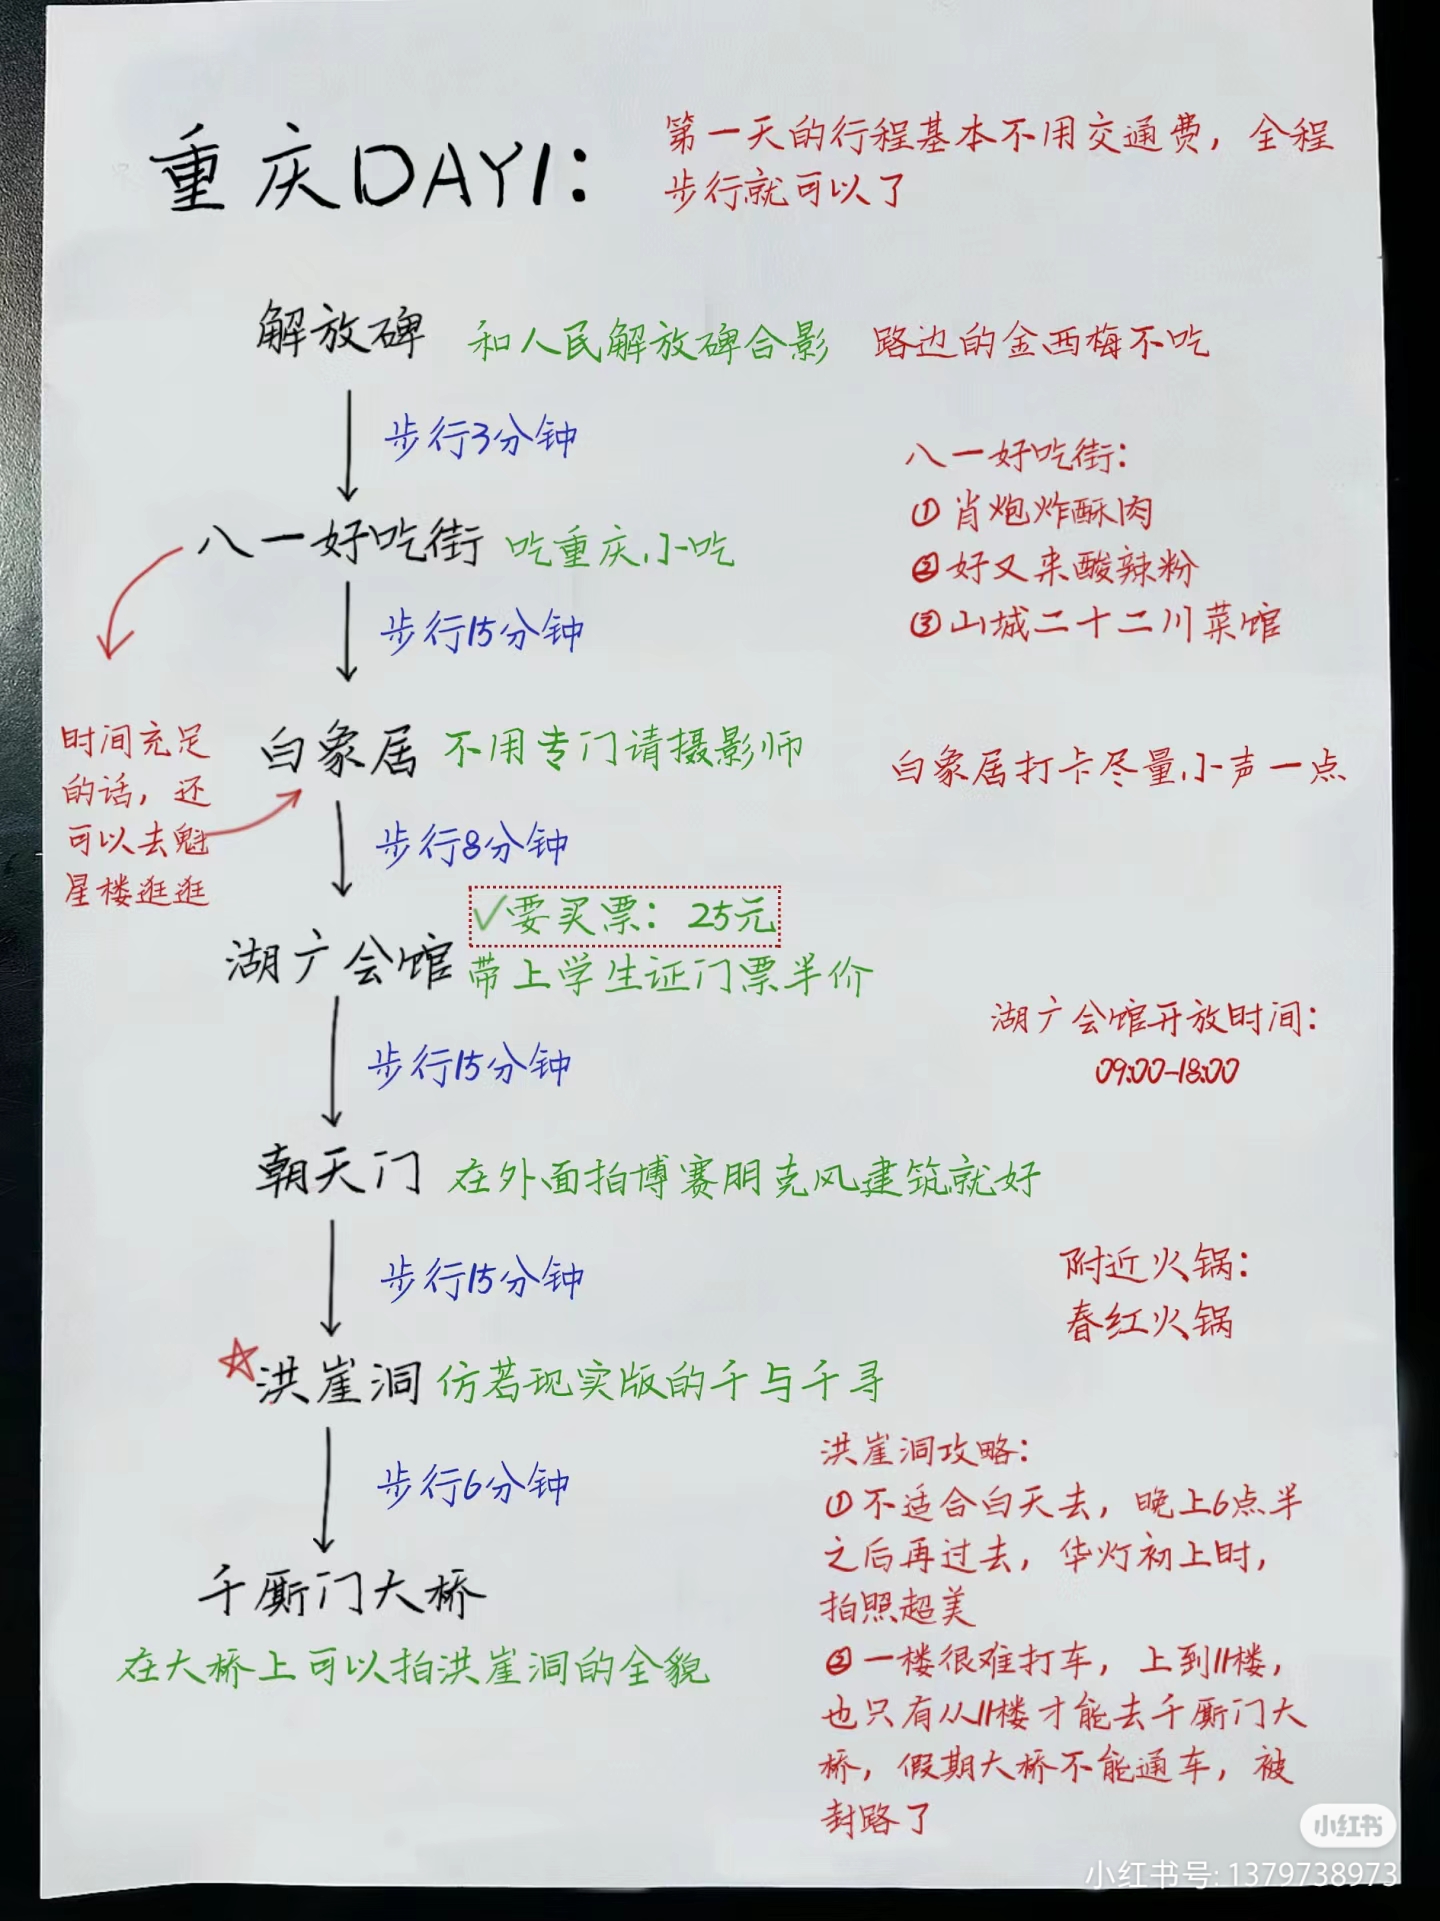 重庆DAY1:
第一天的行程基本不用交通费，全程
步行就可以了
解放碑 和人民解放碑合影 路边的金西梅不吃
步行3分钟
八一好吃街:
①肖炮炸酥肉
②好又来酸辣粉
③山城二十二川菜馆
八一好吃街 吃重庆小吃
步行15分钟
时间充足
的话，还
可以去魁
星楼逛逛
白象居 不用专门请摄影师
白象居打卡尽量小声一点
步行8分钟
✓要买票：25元
湖广会馆 带上学生证门票半价
湖广会馆开放时间:
09:00-18:00
步行15分钟
朝天门 在外面拍博赛朋克风建筑就好
步行15分钟
附近火锅:
春红火锅
☆洪崖洞 仿若现实版的千与千寻
步行6分钟
千厮门大桥
在大桥上可以拍洪崖洞的全貌
洪崖洞攻略:
①不适合白天去，晚上6点半
之后再过去，华灯初上时，
拍照超美
②一楼很难打车，上到11楼，
也只有从11楼才能去千厮门大
桥，假期大桥不能通车，被
封路了
小红书
小红书号: 1379738973